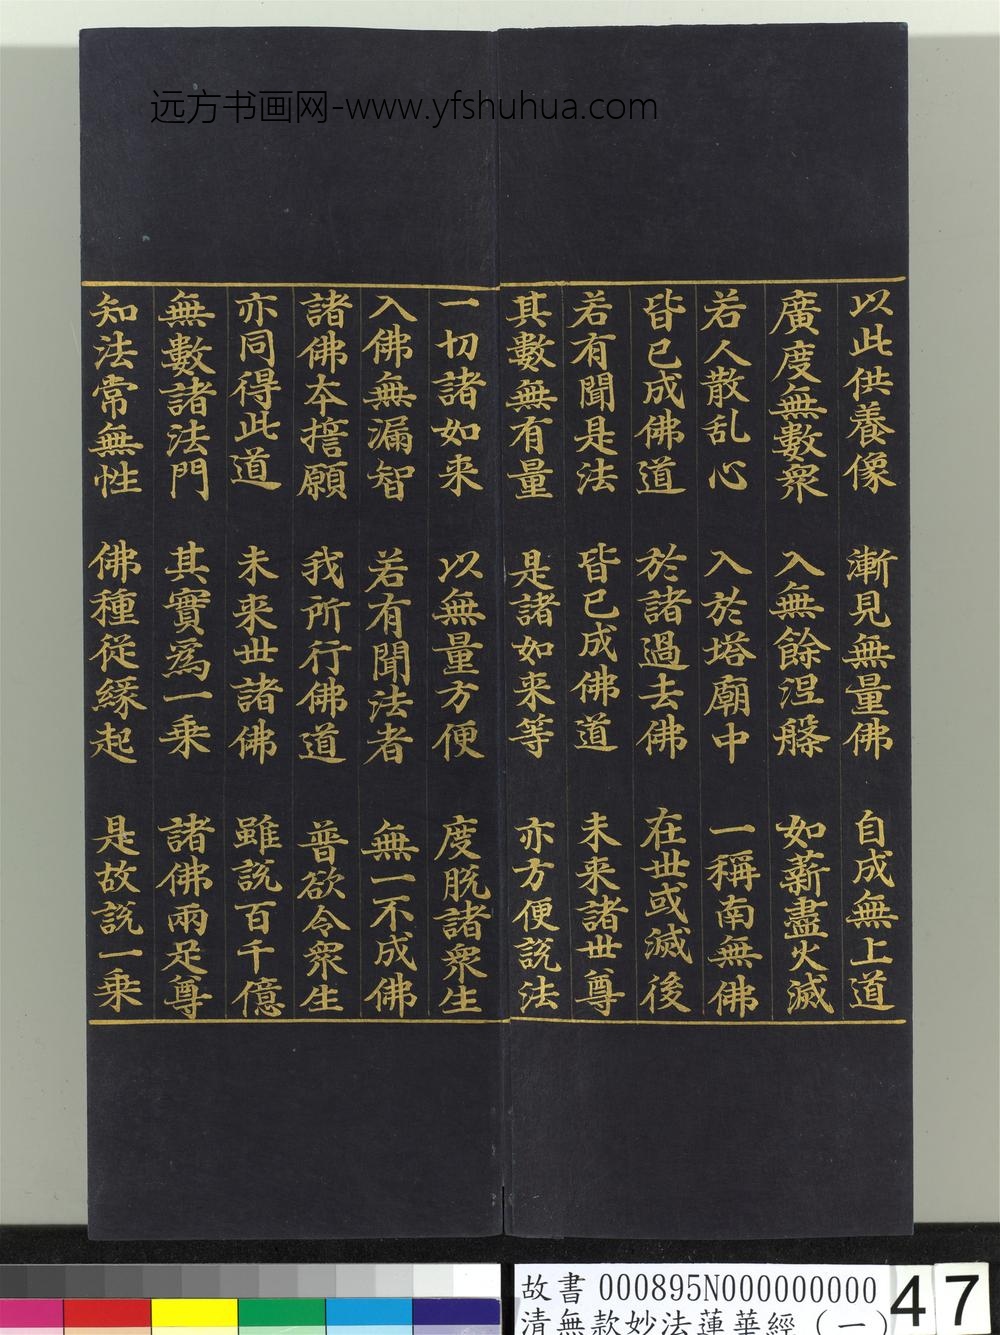 远方书画网-www.yfshuhua.com
以此供養像 漸見無量佛 自成無上道
廣度無數衆 入無餘涅槃 如薪盡火滅
若人散乱心 入於塔廟中 一稱南無佛
皆已成佛道 於諸過去佛 在世或滅後
若有聞是法 皆已成佛道 未来諸世尊
其數無有量 是諸如来等 亦方便説法
一切諸如来 以無量方便 度脱諸衆生
入佛無漏智 若有聞法者 無一不成佛
諸佛本誓願 我所行佛道 普欲令衆生
亦同得此道 未来世諸佛 雖説百千億
無數諸法門 其實爲一乗 諸佛兩足尊
知法常無性 佛種從緣起 是故説一乗
故書 000895N000000000
清無款妙法蓮華經（一）
47